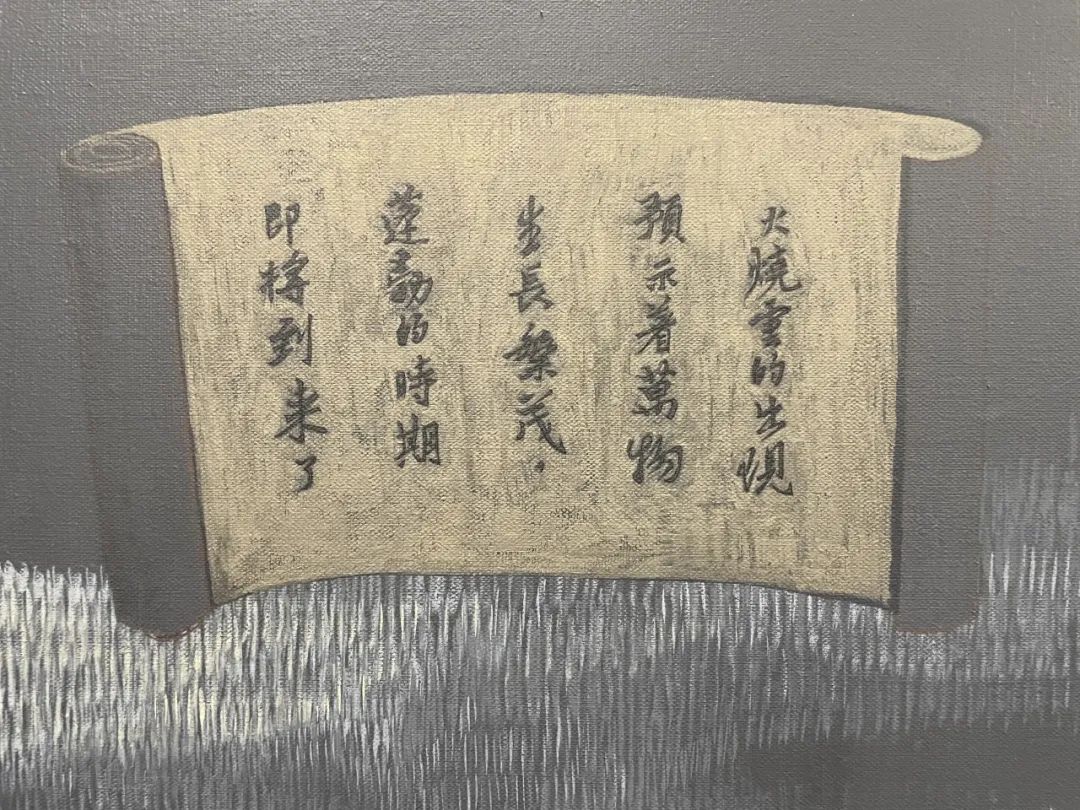 火燒雲的出現
預示着萬物
生長繁茂.
蓬勃的時期
即將到来了